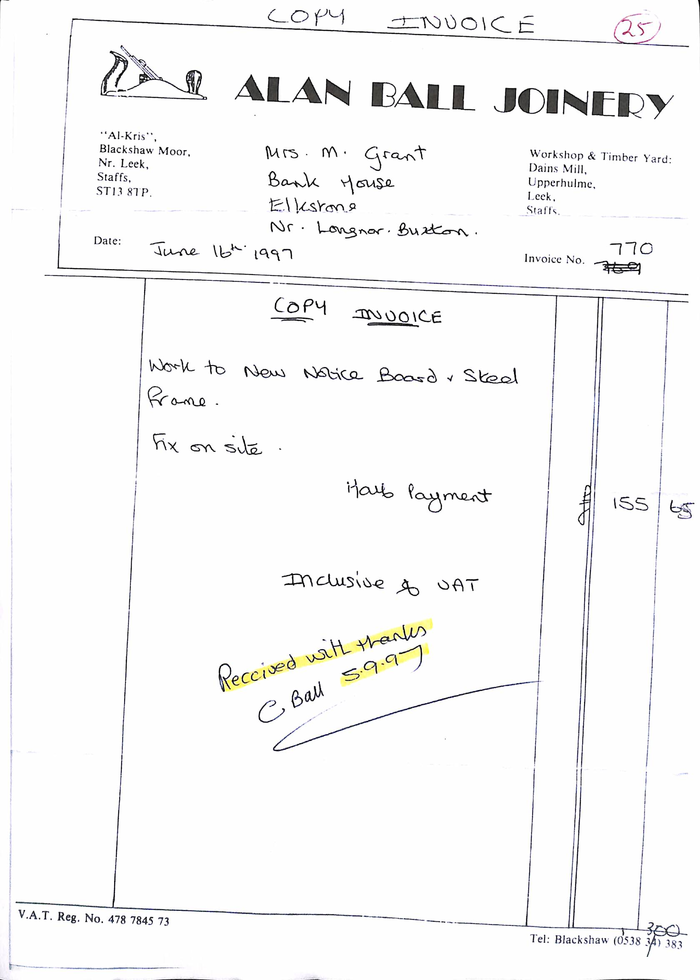 COPY INVOICE
25
ALAN BALL JOINERY
"Al-Kris",
Blackshaw Moor,
Nr. Leek,
Staffs,
ST13 8TP.
Mrs. M. Grant
Bank House
Elkstone
Nr. Longnor. Buxton.
Workshop & Timber Yard:
Dains Mill,
Upperhulme,
Leek,
Staffs.
Date: June 16th. 1997
770
Invoice No.
COPY INVOICE
Work to New Notice Board & Steel
Frame.
Fix on site.
Half Payment £ 155 65
Inclusive of VAT
Received with thanks
C Ball 5.9.97
V.A.T. Reg. No. 478 7845 73
300
Tel: Blackshaw (0538 34) 383